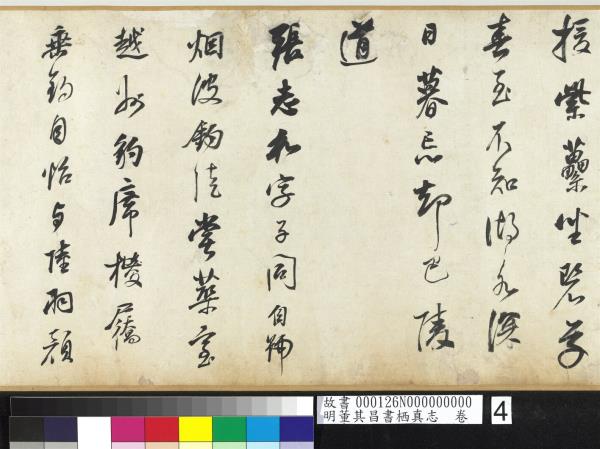 援紫蘽坐碧草
春至不知湖水深
日暮忘却巴陵
道
張志和字子同自號
烟波釣徒嘗築室
越州豹席椶屩
垂釣自怡与陸羽顏
故書 000126N000000000
明董其昌書栖真志 卷
4